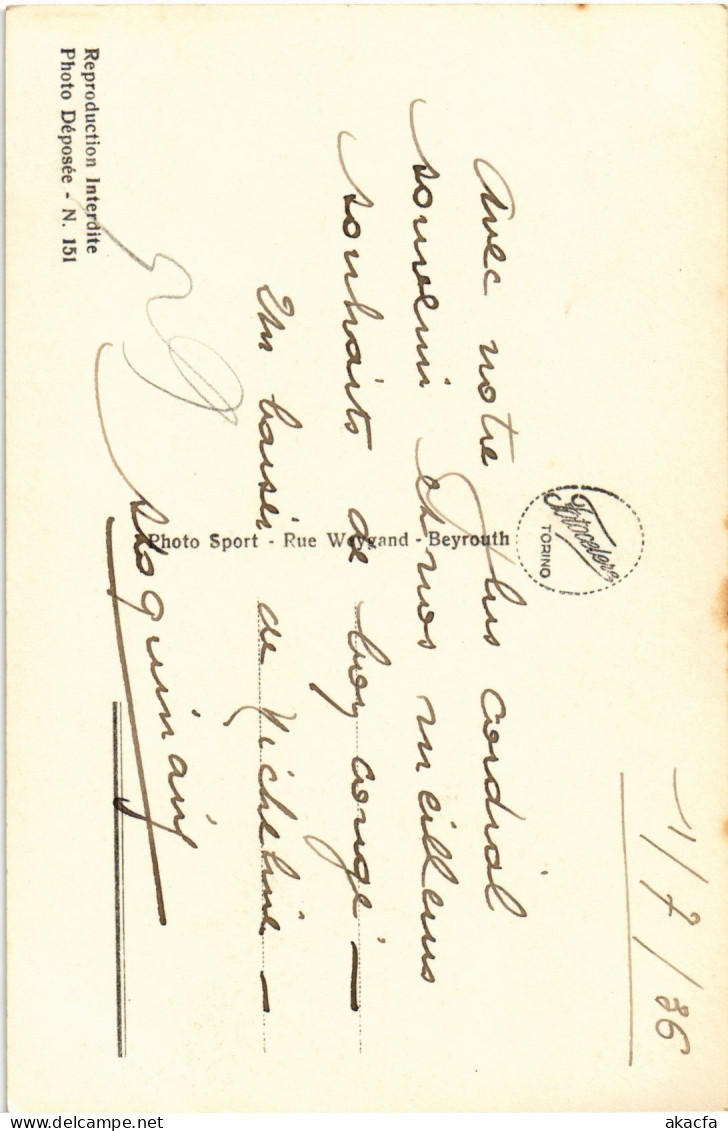 1/7/36
Avec notre plus cordial
souvenir et nos meilleurs
souhaits de bon congé —
Un baiser de Micheline —
Photo Sport - Rue Weygand - Beyrouth
TORINO
Reproduction Interdite
Photo Déposée - N. 151
© akacfa
akacfa